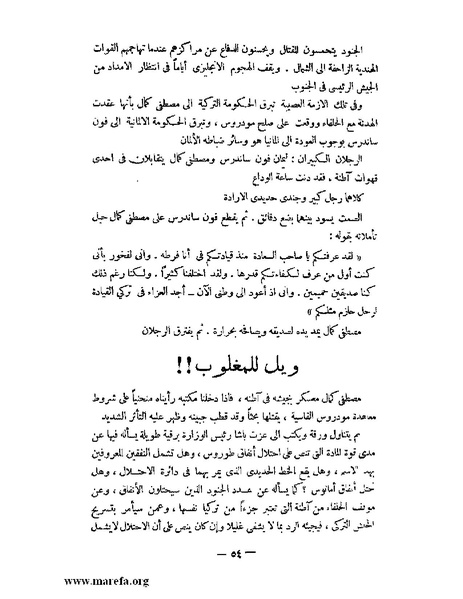 الجنود يتحمسون للقتال ويحسنون الدفاع عن مراكزهم عندما تهاجمهم القوات
الهندية الزاحفة الى الشمال . ويقف الهجوم الانجليزى أياماً فى انتظار الامداد من
الجيش الرئيسى فى الجنوب
وفى تلك الازمة العصيبة تبرق الحكومة التركية الى مصطفى كمال بأنها عقدت
الهدنة مع الحلفاء ووقعت على صلح مودروس ، وتبرق الحكومة الالمانية الى فون
ساندرس بوجوب العودة الى المانيا هو وسائر ضباطه الألمان
الرجلان الكبيران : ليمان فون ساندرس ومصطفى كمال يتقابلان فى احدى
قهوات آطنة . فقد دنت ساعة الوداع
كلاهما رجل كبير وجندى حديدى الارادة
الصمت يسود بينهما بضع دقائق . ثم يقطع فون ساندرس على مصطفى كمال حبل
تأملاته بقوله :
« لقد عرفتكم يا صاحب السعادة منذ قيادتكم فى أنا فرطه . وانى لفخور بأنى
كنت أول من عرف لكفاءتكم قدرها . ولقد اختلفنا كثيراً . ولكنا رغم ذلك
كنا صديقين حميمين . وانى اذ أعود الى وطنى الآن ــ أجد العزاء فى تركى القيادة
لرجل حازم مثلكم »
مصطفى كمال يمد يده لصديقه ويصافحه بحرارة . ثم يفترق الرجلان
ويل للمغلوب !!
مصطفى كمال معسكر بجيشه فى آطنه ، فاذا دخلنا مكتبه رأيناه منحنياً على شروط
معاهدة مودروس القاسية ، يقتلها بحثاً وقد قطب جبينه وظهر عليه التأثر الشديد
ثم يتناول ورقة ويكتب الى عزت باشا رئيس الوزارة برقية طويلة يسأله فيها عن
مدى قوة المادة التى تنص على احتلال أنفاق طوروس ، وهل تشمل النفقين المعروفين
بهذا الاسم ، وهل يقع الخط الحديدى الذى يمر بهما فى دائرة الاحتلال ، وهل
تحتل أنفاق أمانوس ؟ كما يسأله عن عدد الجنود الذين سيحتلون الأنفاق ، وعن
موقف الحلفاء من آطنة التى تعتبر جزءاً من تركيا نفسها ، وعمن سيأمر بتسريح
الجيش التركى ، فيجيئه الرد بما لا يشفى غليلا وإن كان ينص على أن الاحتلال لا يشمل
— ٥٤ —
www.marefa.org